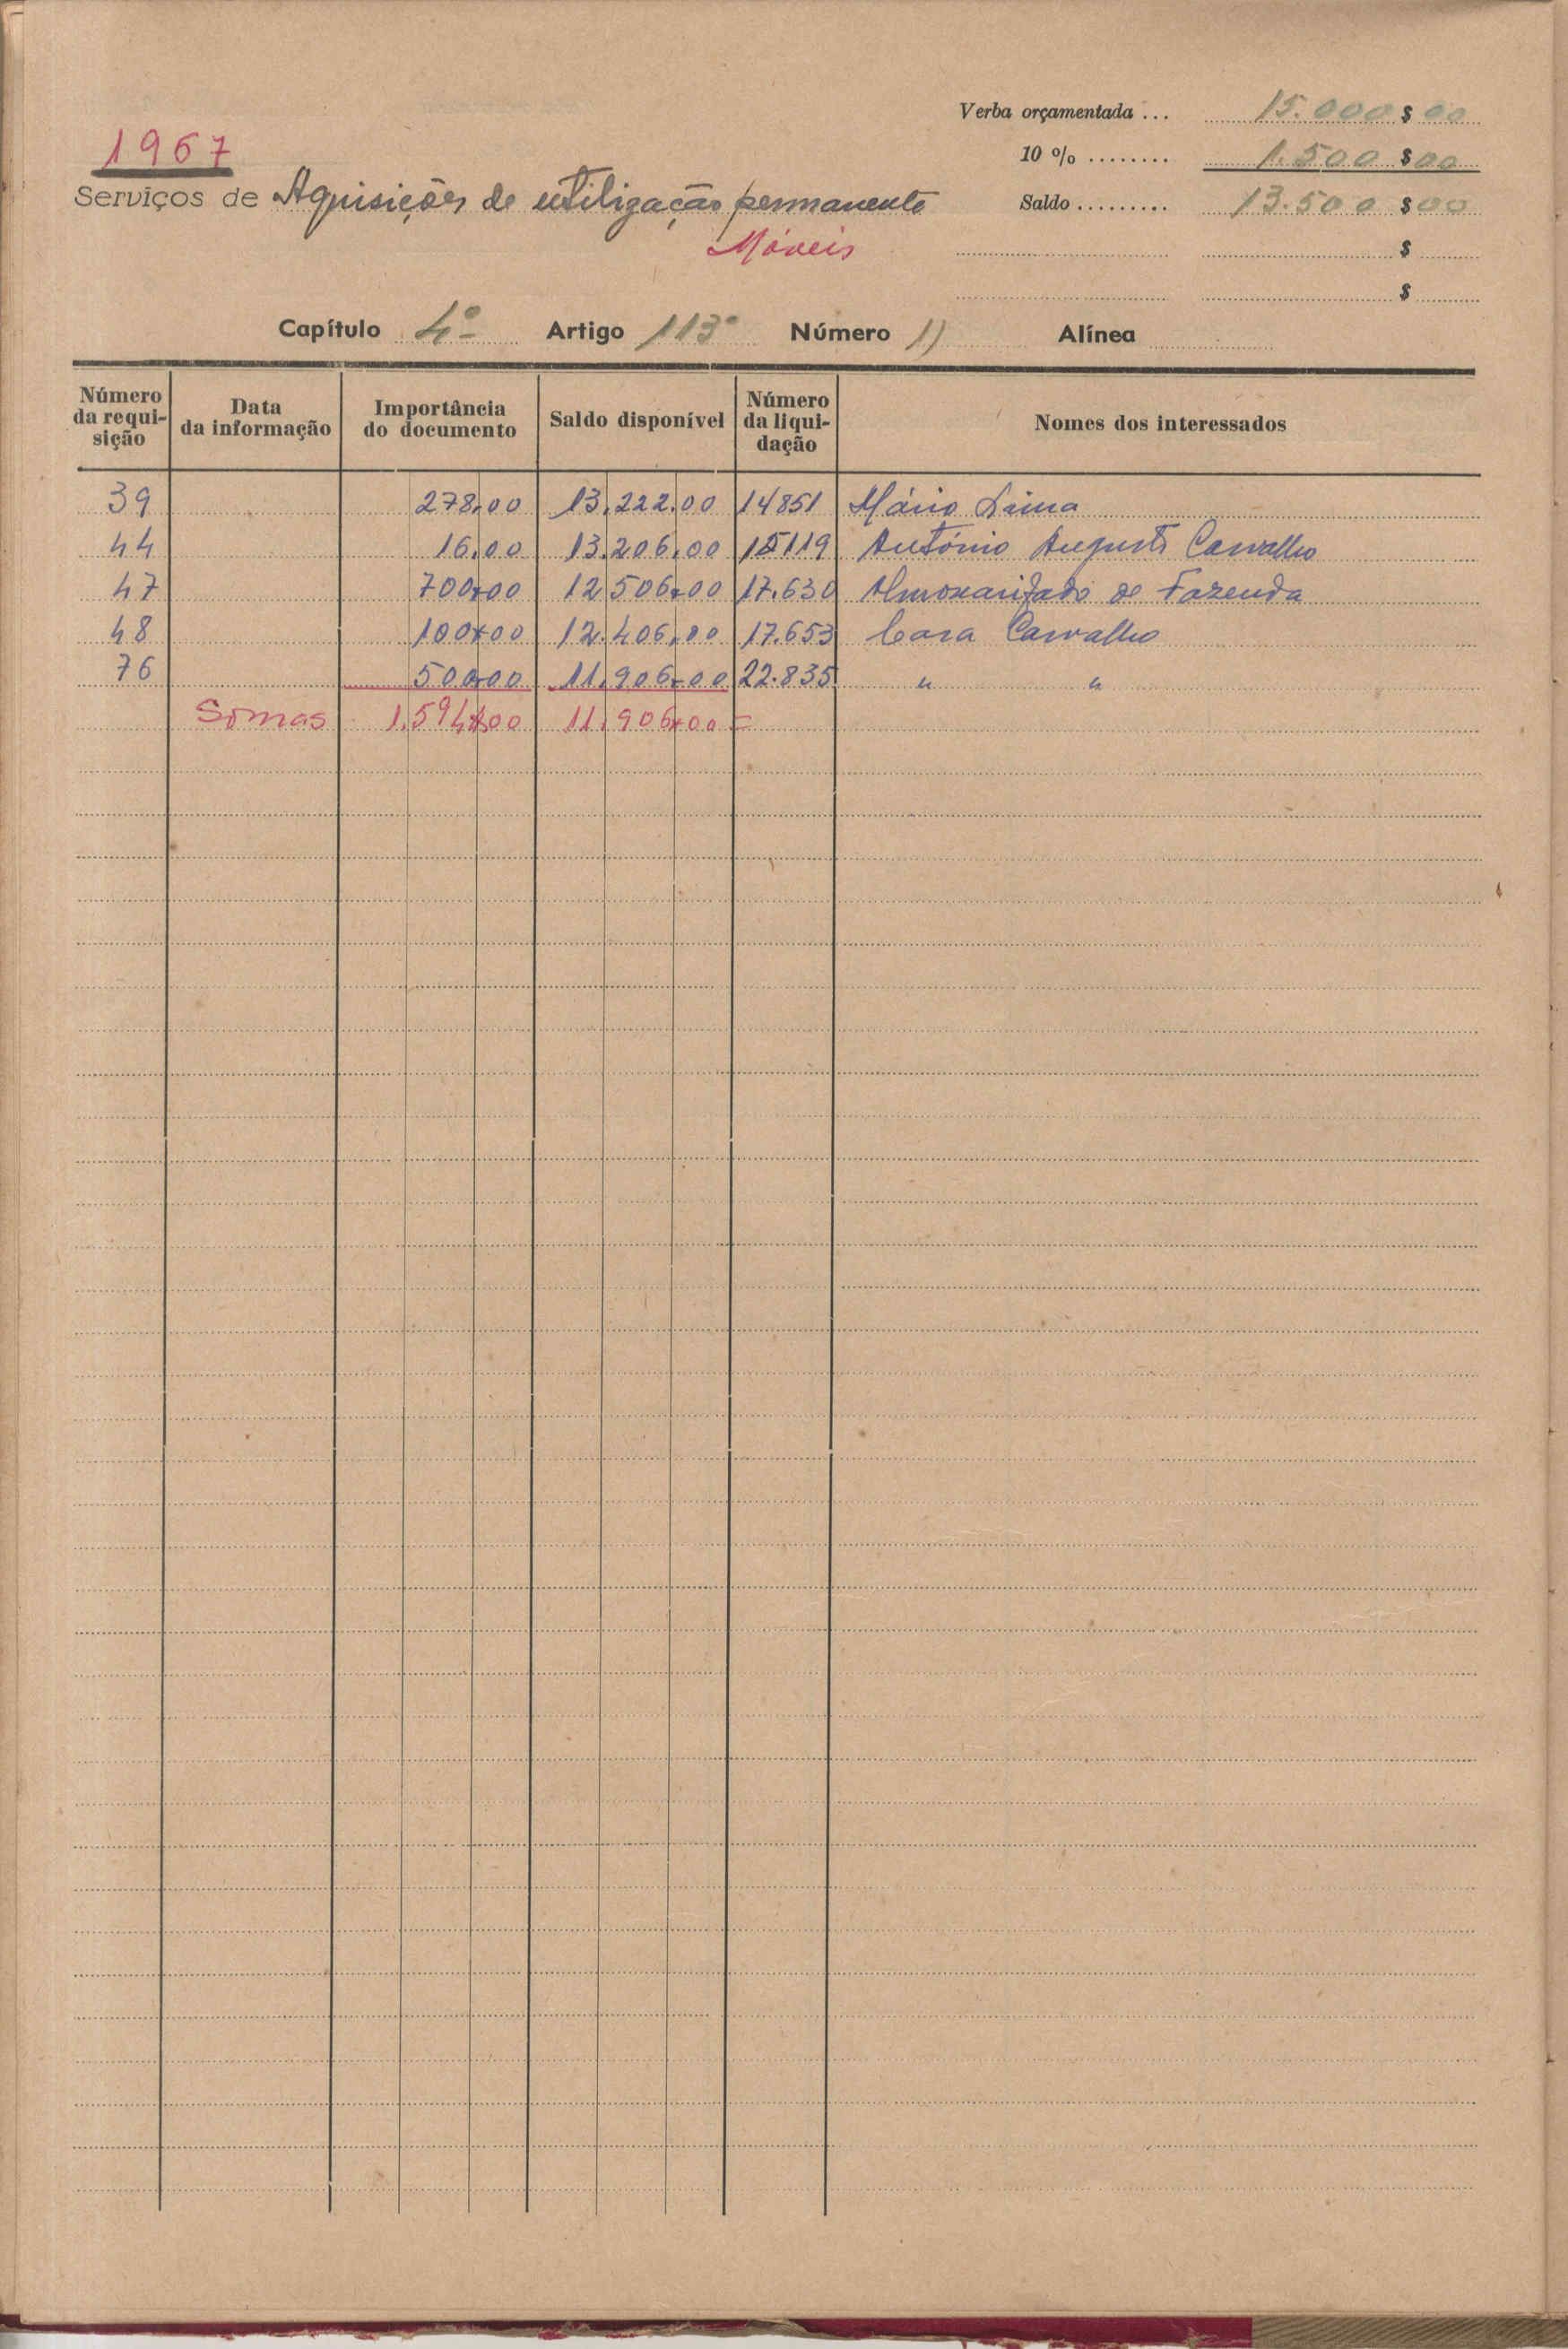 Verba orçamentada ... 15.000$00
1967
10 % ........ 1.500$00
Serviços de Aquisições de utilização permanente
Saldo ......... 13.500$00
Móveis
$
$
Capítulo 4º Artigo 113º Número 1) Alínea
Número da requi-sição Data da informação Importância do documento Saldo disponível Número da liqui-dação Nomes dos interessados
39 278,00 13.222,00 14851 Mário Lima
44 16,00 13.206,00 15119 António Augusto Carvalho
47 700,00 12.506,00 17.630 Almoxarifado de Fazenda
48 100,00 12.406,00 17.653 Casa Carvalho
76 500,00 11.906,00 22.835 " "
Somas 1.594,00 11.906,00 =